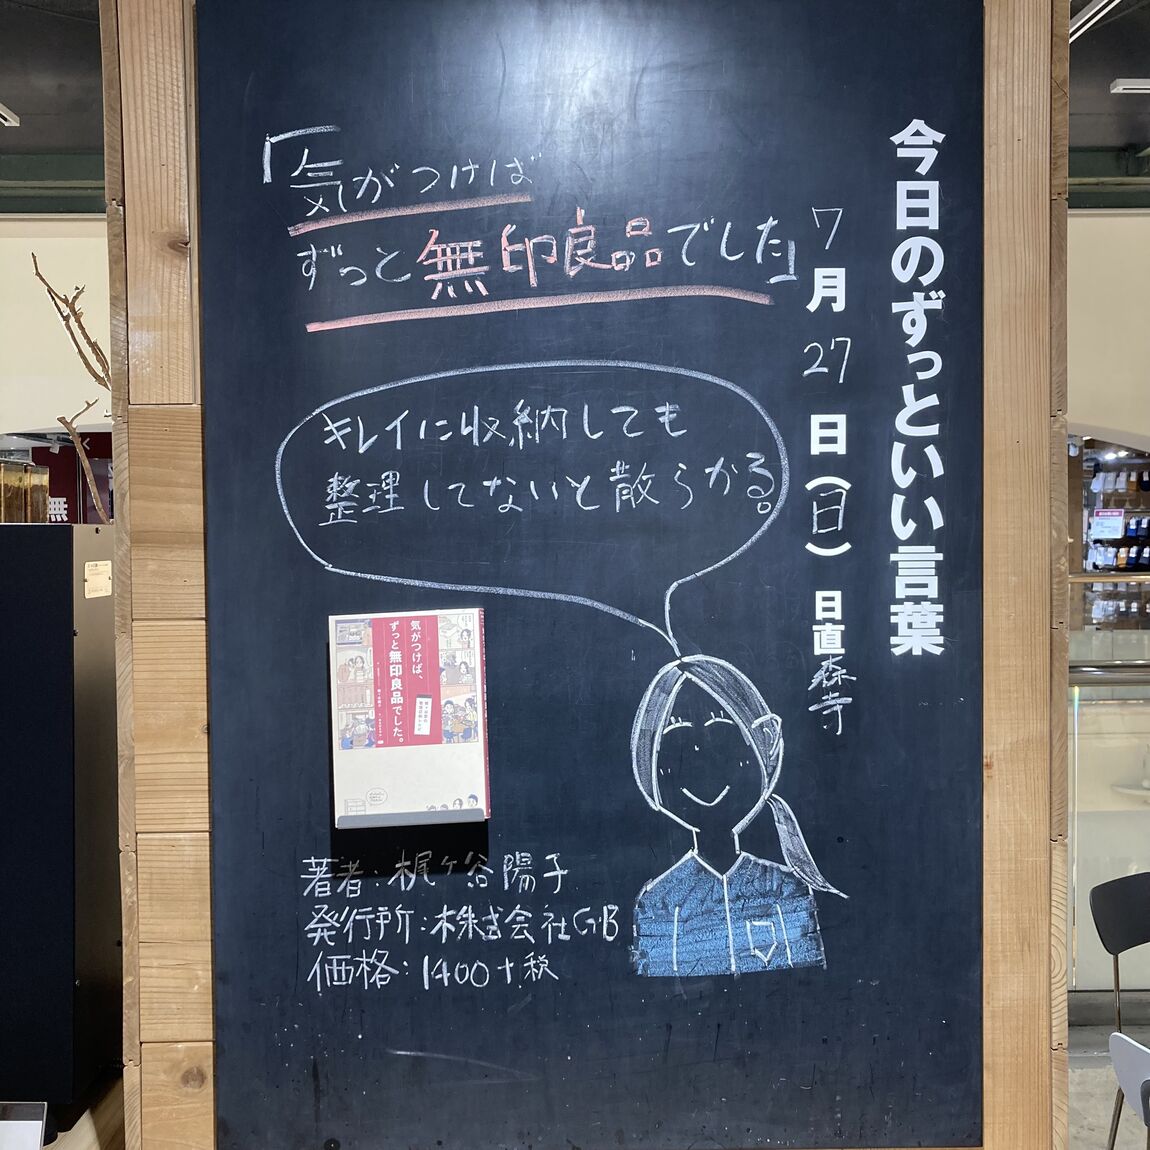 今日のずっといい言葉
7月27日(日) 日直 森寺
「気がつけば
ずっと無印良品でした」
キレイに収納しても
整理してないと散らかる。
気がつけば、
ずっと無印良品でした。
著者:梶ヶ谷陽子
発行所:株式会社G.B
価格:1400+税
無